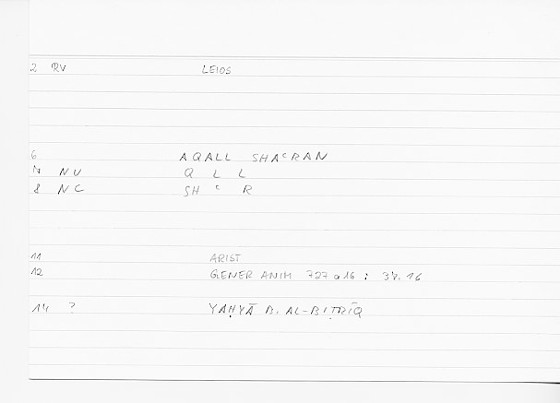 2 RV LEIOS
6 AQALL SHAʿRAN
7 NU Q L L
8 NC SH ʿ R
11 ARIST
12 GENER ANIM 727 a 16 : 34.16
14 ? YAḤYĀ B. AL-BIṬRĪQ